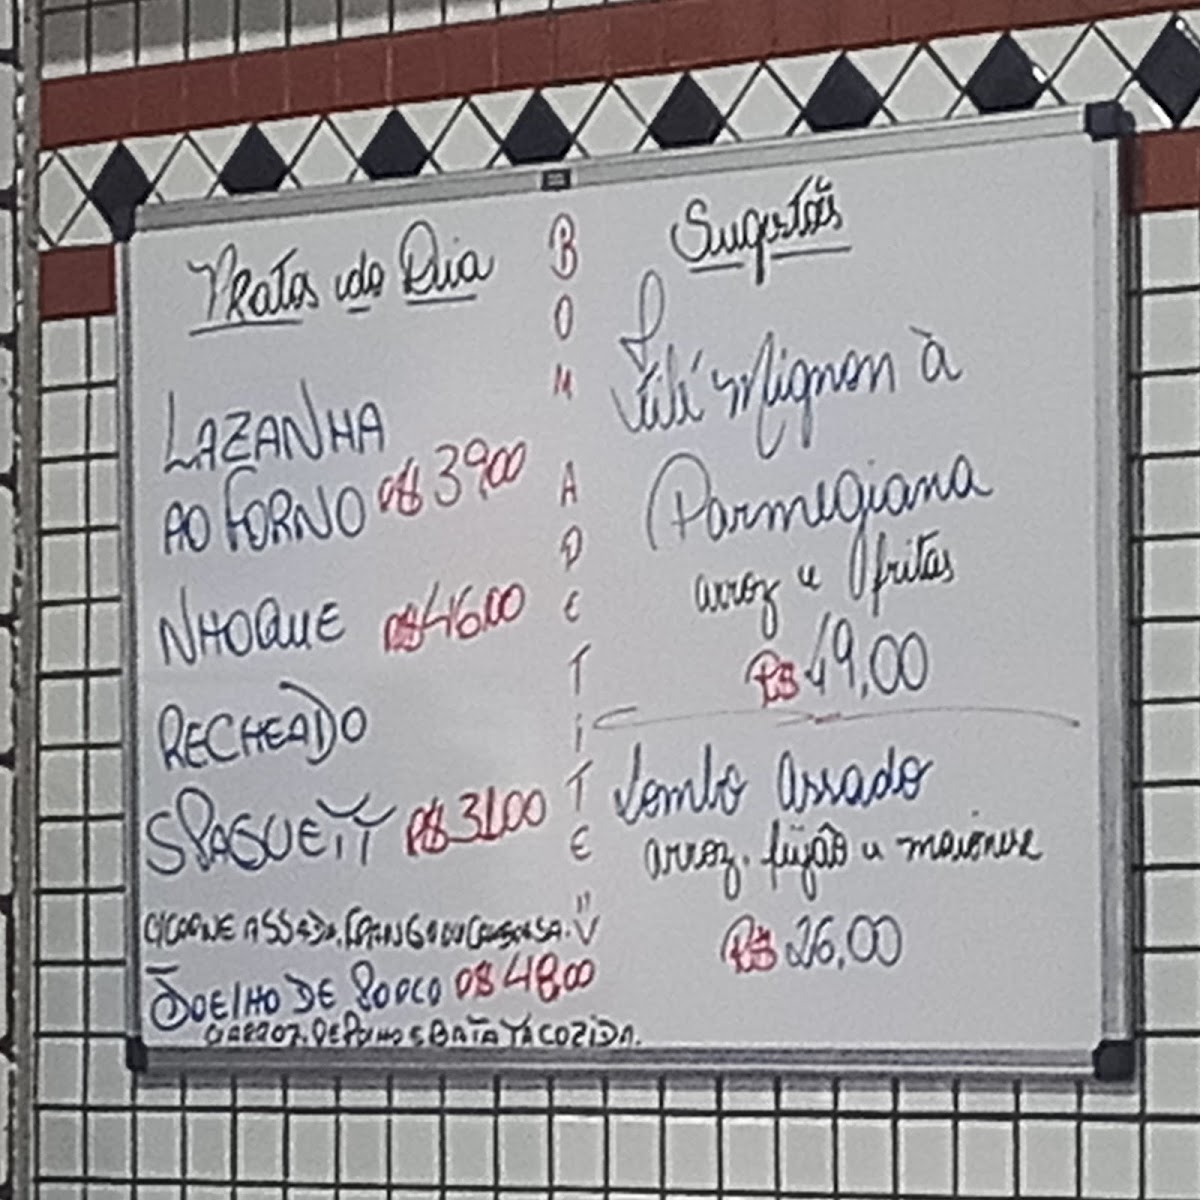 Pratos do Dia
LAZANHA
AO FORNO R$ 39,00
NHOQUE R$ 46,00
RECHEADO
SPAGUETTY R$ 31,00
C/CARNE ASSADA, FRANGO OU CALABRESA.
JOELHO DE PORCO R$ 48,00
C/ARROZ, REPOLHO E BATATA COZIDA.
BOM APETITE!!
Sugestões
Filé Mignon à
Parmegiana
arroz e fritas
R$ 49,00
Lombo Assado
arroz, feijão e maionese
R$ 26,00